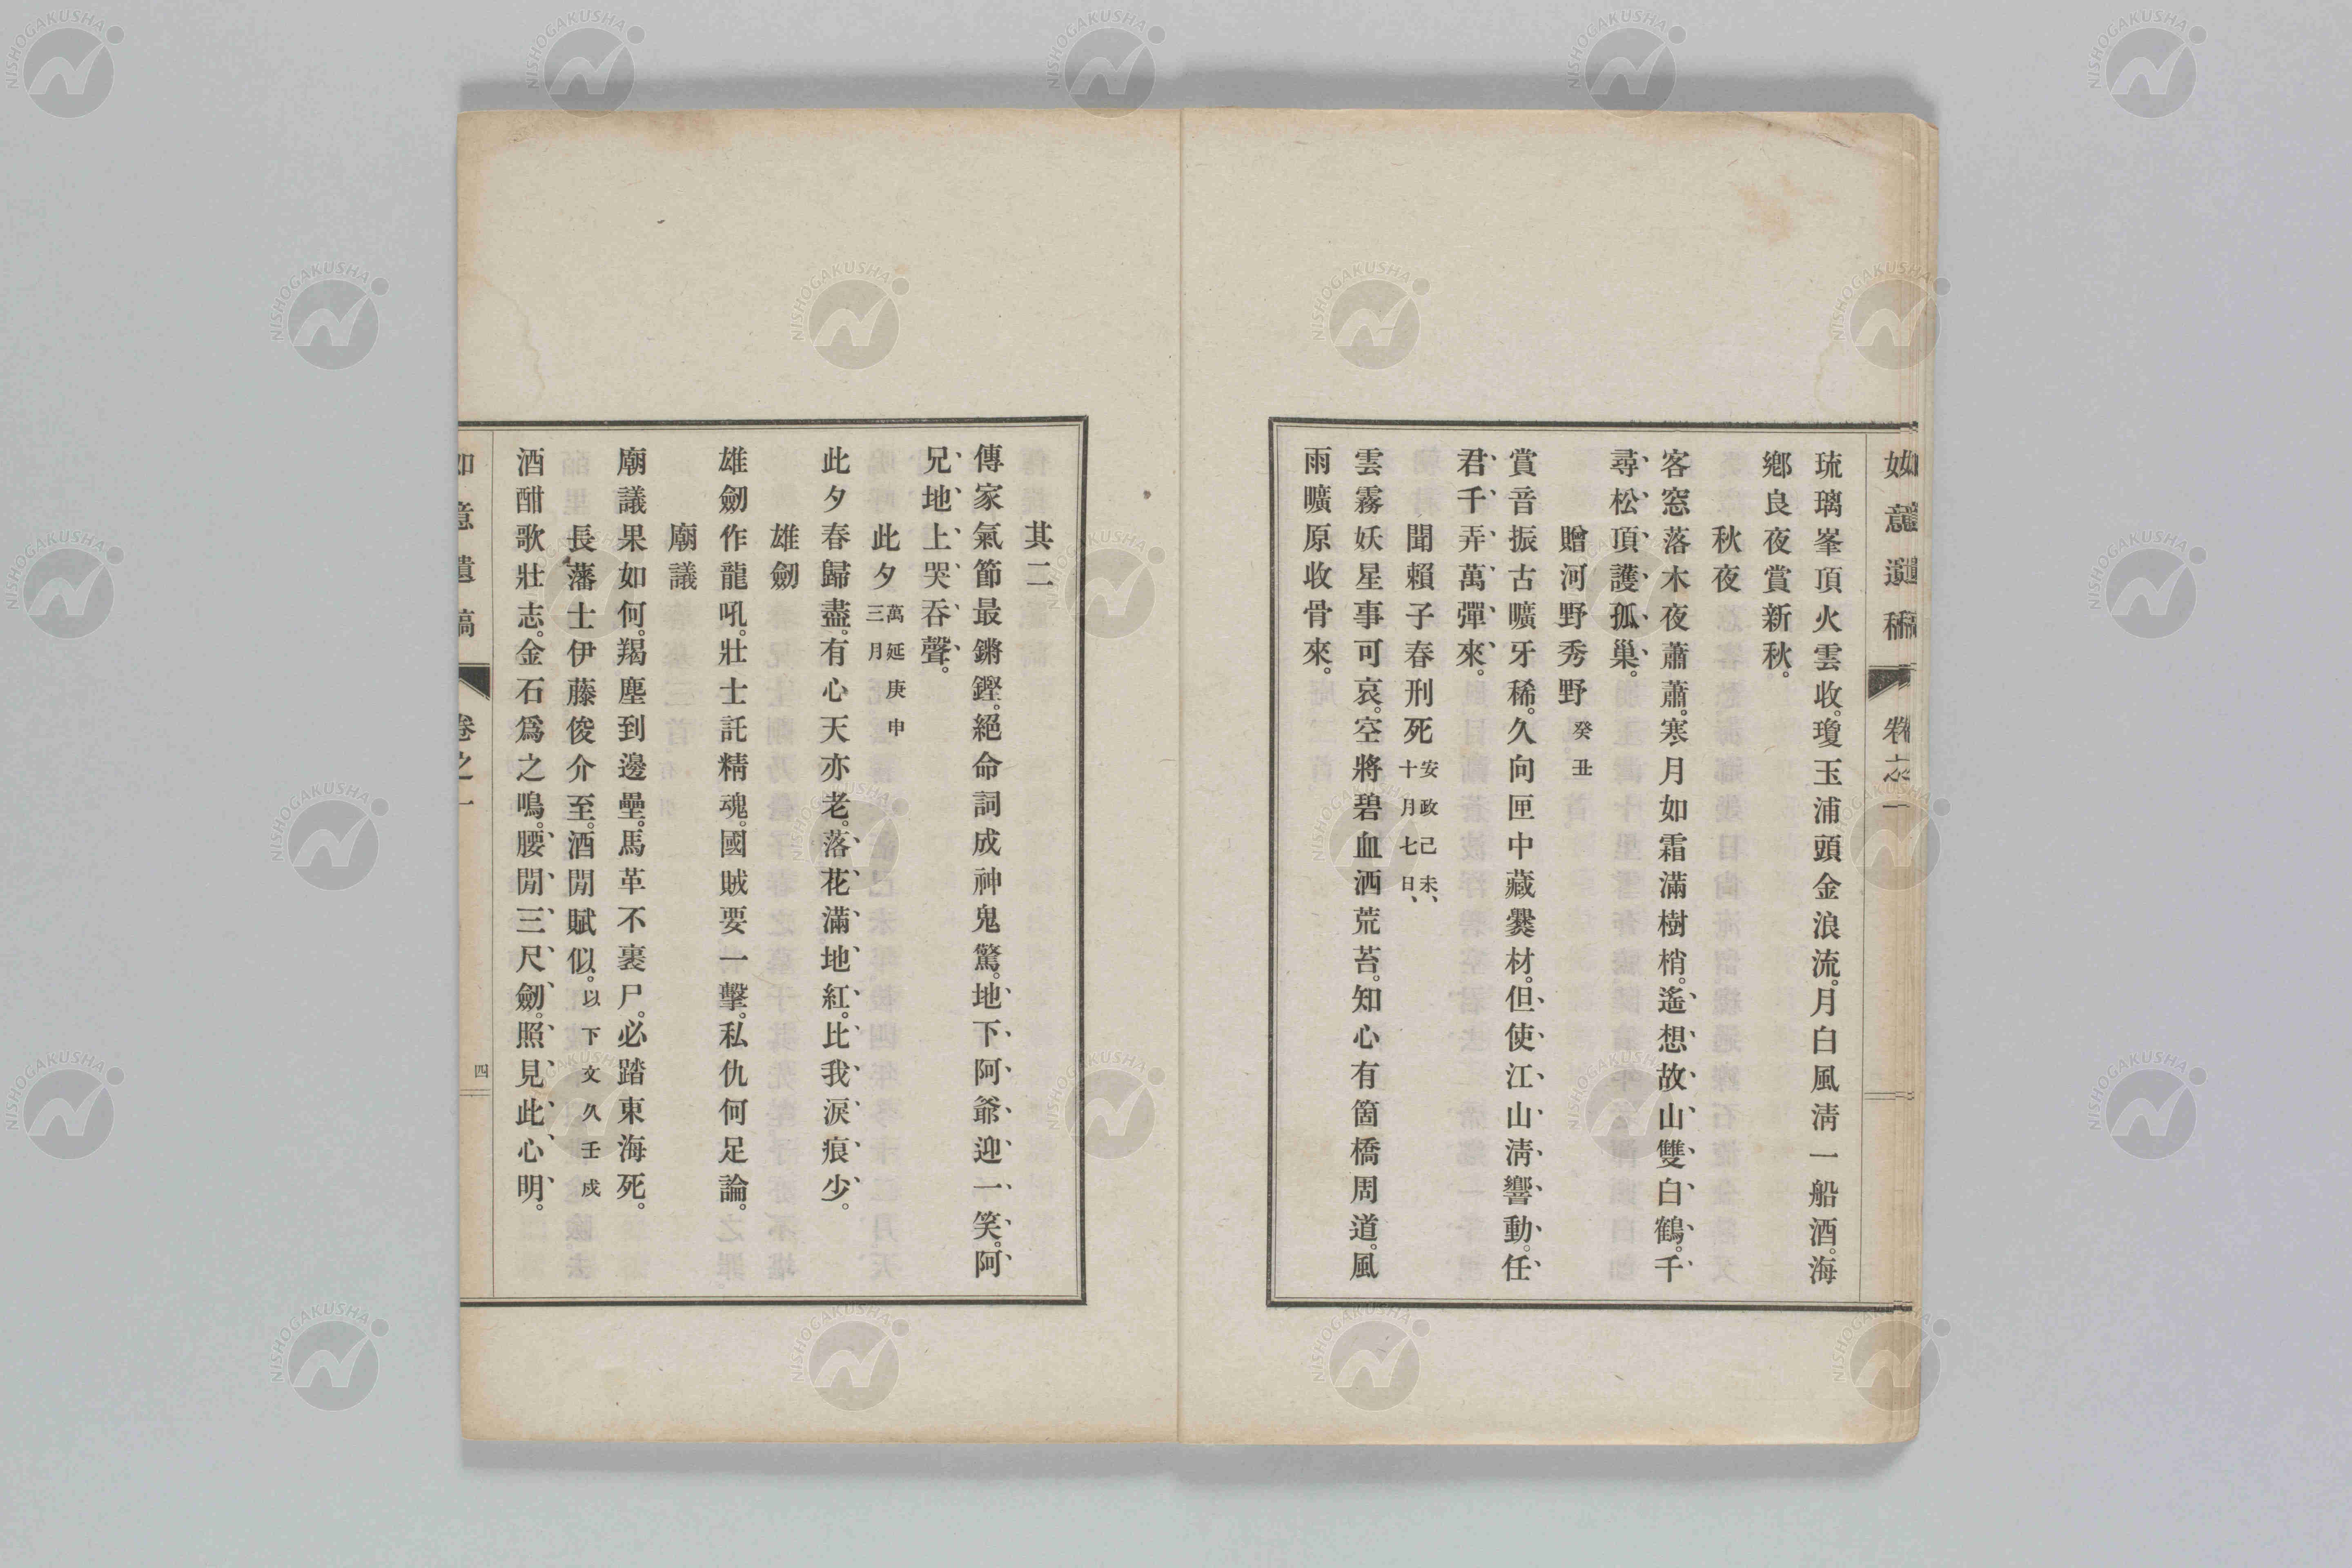 琉璃峯頂火雲收。瓊玉浦頭金浪流。月白風淸一船酒。海
鄕良夜賞新秋。
秋夜
客窓落木夜蕭蕭。寒月如霜滿樹梢。遙想故山雙白鶴。千
尋松頂護孤巢。
贈河野秀野 癸丑
賞音振古曠牙稀。久向匣中藏爨材。但使江山淸響動。任
君千弄萬彈來。
聞賴子春刑死 安政己未、十月七日、
雲霧妖星事可哀。空將碧血洒荒苔。知心有箇橋周道。風
雨曠原收骨來。
如意遺稿 卷之一
其二
傳家氣節最鏘鏗。絕命詞成神鬼驚。地下阿爺迎一笑。阿
兄地上哭吞聲。
此夕 萬延庚申三月
此夕春歸盡。有心天亦老。落花滿地紅。比我淚痕少。
雄劒
雄劒作龍吼。壯士託精魂。國賊要一擊。私仇何足論。
廟議
廟議果如何。羯塵到邊壘。馬革不裹尸。必踏東海死。
長藩士伊藤俊介至。酒閒賦似。以下文久壬戌
酒酣歌壯志。金石爲之鳴。腰閒三尺劒。照見此心明。
如意遺稿 卷之一 四
NISHOGAKUSHA